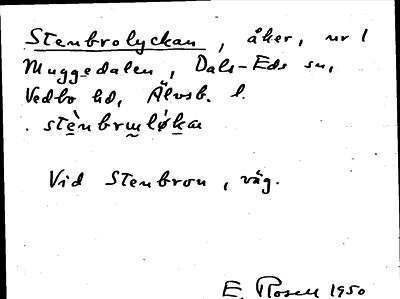 Stenbrolyckan, åker, nr 1
Muggedalen, Dals-Eds sn,
Vedbo hd, Älvsb. l.
Vid Stenbron, väg.
E. Rosell 1950